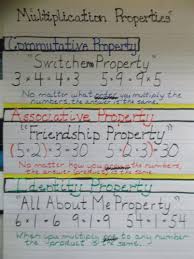 Multiplication Properties
Commutative Property
"Switchem Property"
3×4=4×3 5·9=9×5
No matter what order you multiply the
numbers, the answer is the same.
Associative Property
"Friendship Property"
(5·2)·3=30 5·(2·3)=30
No matter how you group the numbers,
the answer (product) is the same.
Identity Property
"All About Me Property"
6·1=6 9·1=9 54·1=54
When you multiply one to any number
the product is the same.